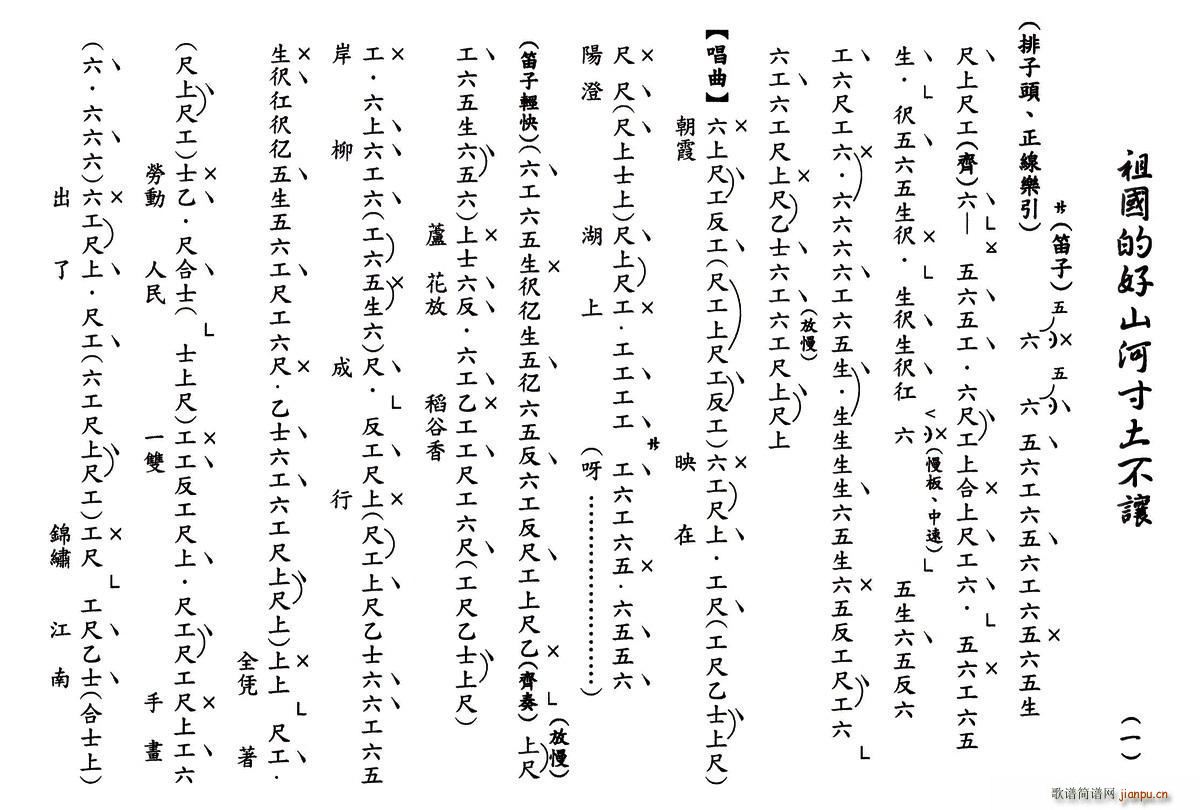 祖國的好山河寸土不讓
(一)
(排子頭、正線樂引)
サ(笛子)五六五六五六工六五六工六五六五生
尺上尺工(齊)六—五六五工·六尺工上合上尺工六·五六工六五
生·伬五六五生伬·生伬生伬仜六(慢板、中速)五生六五反六
工六尺工六·六六六工六五生·生生生生六五生六五反工尺工六
六工六工尺上尺乙士六工六工尺上尺上
(放慢)
【唱曲】六上尺工反工(尺工上尺工反工)六工尺上·工尺(工尺乙士上尺)
朝霞映在
尺尺(尺上士上)尺上尺工·工工工サ工六工六五·六五五六
陽澄湖上(呀……………………)
(笛子輕快)(六工六五生伬亿生五亿六五反六工反尺工上尺乙(齊奏)上尺
(放慢)
工六五生六五六)上士六反·六工乙工工尺工六尺(工尺乙士上尺)
蘆花放稻谷香
工·六上六工六(工六五生六)尺·反工尺上(尺工上尺乙士六六工六五
岸柳成行
生伬仜伬亿五生五六工尺工六尺·乙士六工六工尺上尺上)上上尺工·
全凭著
(尺上尺工)士乙·尺合士(士上尺)工工反工尺上·尺工尺工尺上工六
勞動人民一雙手畫
(六·六六六)六工尺上·尺工(六工尺上尺工)工尺工尺乙士(合士上)
出了錦繡江南
歌谱简谱网
jianpu.cn